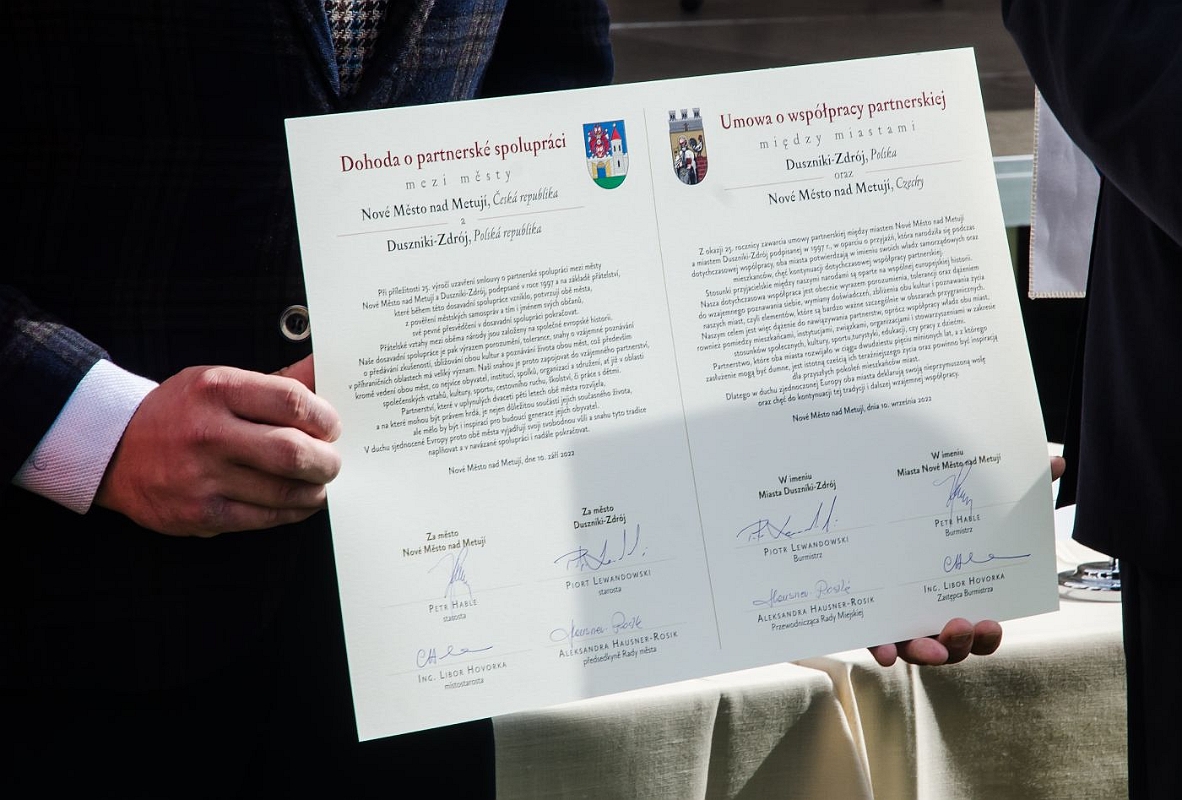 Dohoda o partnerské spolupráci
mezi městy
Nové Město nad Metují, Česká republika
a
Duszniki-Zdrój, Polská republika
Při příležitosti 25. výročí uzavření smlouvy o partnerské spolupráci mezi městy
Nové Město nad Metují a Duszniki-Zdrój, podepsané v roce 1997 a na základě přátelství,
které během této dosavadní spolupráce vzniklo, potvrzují obě města,
z pověření městských samospráv a tím i jménem svých občanů,
své pevné přesvědčení v dosavadní spolupráci pokračovat.
Přátelské vztahy mezi oběma národy jsou založeny na společné evropské historii.
Naše dosavadní spolupráce je pak výrazem porozumění, tolerance, snahy o vzájemné poznávání
o předávání zkušeností, sbližování obou kultur a poznávání života obou měst, což především
v příhraničních oblastech má velký význam. Naší snahou je proto zapojovat do vzájemného partnerství,
kromě vedení obou měst, co nejvíce obyvatel, institucí, spolků, organizací a sdružení, ať již v oblasti
společenských vztahů, kultury, sportu, cestovního ruchu, školství, či práce s dětmi.
Partnerství, které v uplynulých dvaceti pěti letech obě města rozvíjela,
a na které mohou být právem hrdá, je nejen důležitou součástí jejich současného života,
ale mělo by být i inspirací pro budoucí generace jejich obyvatel.
V duchu sjednocené Evropy proto obě města vyjadřují svoji svobodnou vůli a snahu tyto tradice
naplňovat a v navázané spolupráci i nadále pokračovat.
Nové Město nad Metují, dne 10. září 2022
Za město
Nové Město nad Metují
Za město
Duszniki-Zdrój
Petr Hable
starosta
Piort Lewandowski
starosta
Ing. Libor Hovorka
místostarosta
Aleksandra Hausner-Rosik
předsedkyně Rady města
Umowa o współpracy partnerskiej
między miastami
Duszniki-Zdrój, Polska
oraz
Nové Město nad Metují, Czechy
Z okazji 25. rocznicy zawarcia umowy partnerskiej między miastem Nové Město nad Metují
a miastem Duszniki-Zdrój podpisanej w 1997 r., w oparciu o przyjaźń, która narodziła się podczas
dotychczasowej współpracy, oba miasta potwierdzają w imieniu swoich władz samorządowych oraz
mieszkańców, chęć kontynuacji dotychczasowej współpracy partnerskiej.
Stosunki przyjacielskie między naszymi narodami są oparte na wspólnej europejskiej historii.
Nasza dotychczasowa współpraca jest obecnie wyrazem porozumienia, tolerancji oraz dążeniem
do wzajemnego poznawania siebie, wymiany doświadczeń, zbliżenia obu kultur i poznawania życia
naszych miast, czyli elementów, które są bardzo ważne szczególnie w obszarach przygranicznych.
Naszym celem jest więc dążenie do nawiązywania partnerstw, oprócz współpracy władz obu miast,
rownież pomiędzy mieszkańcami, instytucjami, związkami, organizacjami i stowarzyszeniami w zakresie
stosunków społecznych, kultury, sportu, turystyki, edukacji, czy pracy z dziećmi.
Partnerstwo, które oba miasta rozwijało w ciągu dwudziestu pięciu minionych lat, a z którego
zasłużenie mogą być dumne, jest istotną częścią ich teraźniejszego życia oraz powinno być inspiracją
dla przyszłych pokoleń mieszkańców miast.
Dlatego w duchu zjednoczonej Europy oba miasta deklarują swoją nieprzymuszoną wolę
oraz chęć do kontynuacji tej tradycji i dalszej wzajemnej współpracy.
Nové Město nad Metují, dnia 10. września 2022
W imieniu
Miasta Duszniki-Zdrój
W imieniu
Miasta Nové Město nad Metují
Piotr Lewandowski
Burmistrz
Petr Hable
Burmistrz
Aleksandra Hausner-Rosik
Przewodnicząca Rady Miejskiej
Ing. Libor Hovorka
Zastępca Burmistrza